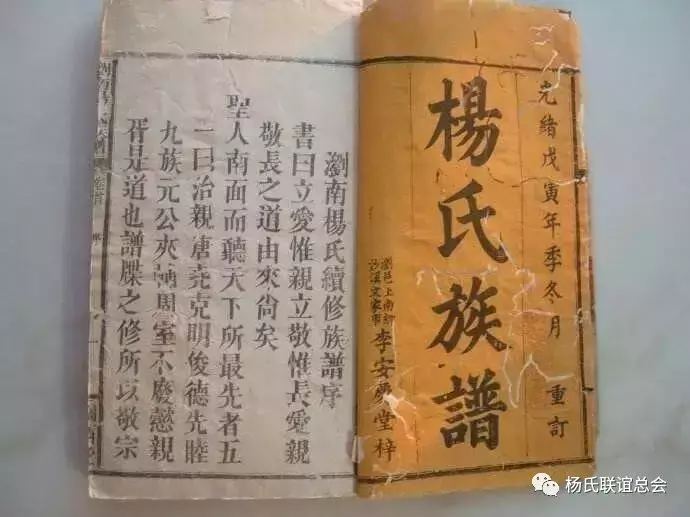 光緒戊寅年季冬月　重訂
楊氏族譜
瀏邑上南鄉
沙溪文家市
李安慶堂梓
瀏南楊氏續修族譜序
書曰立愛惟親立敬惟長愛親
敬長之道由來尚矣
聖人南面而聽天下所最先者五
一曰治親唐堯克明俊德先睦
九族元公夾輔周室不廢懿親
胥是道也譜牒之修所以敬宗
杨氏联谊总会